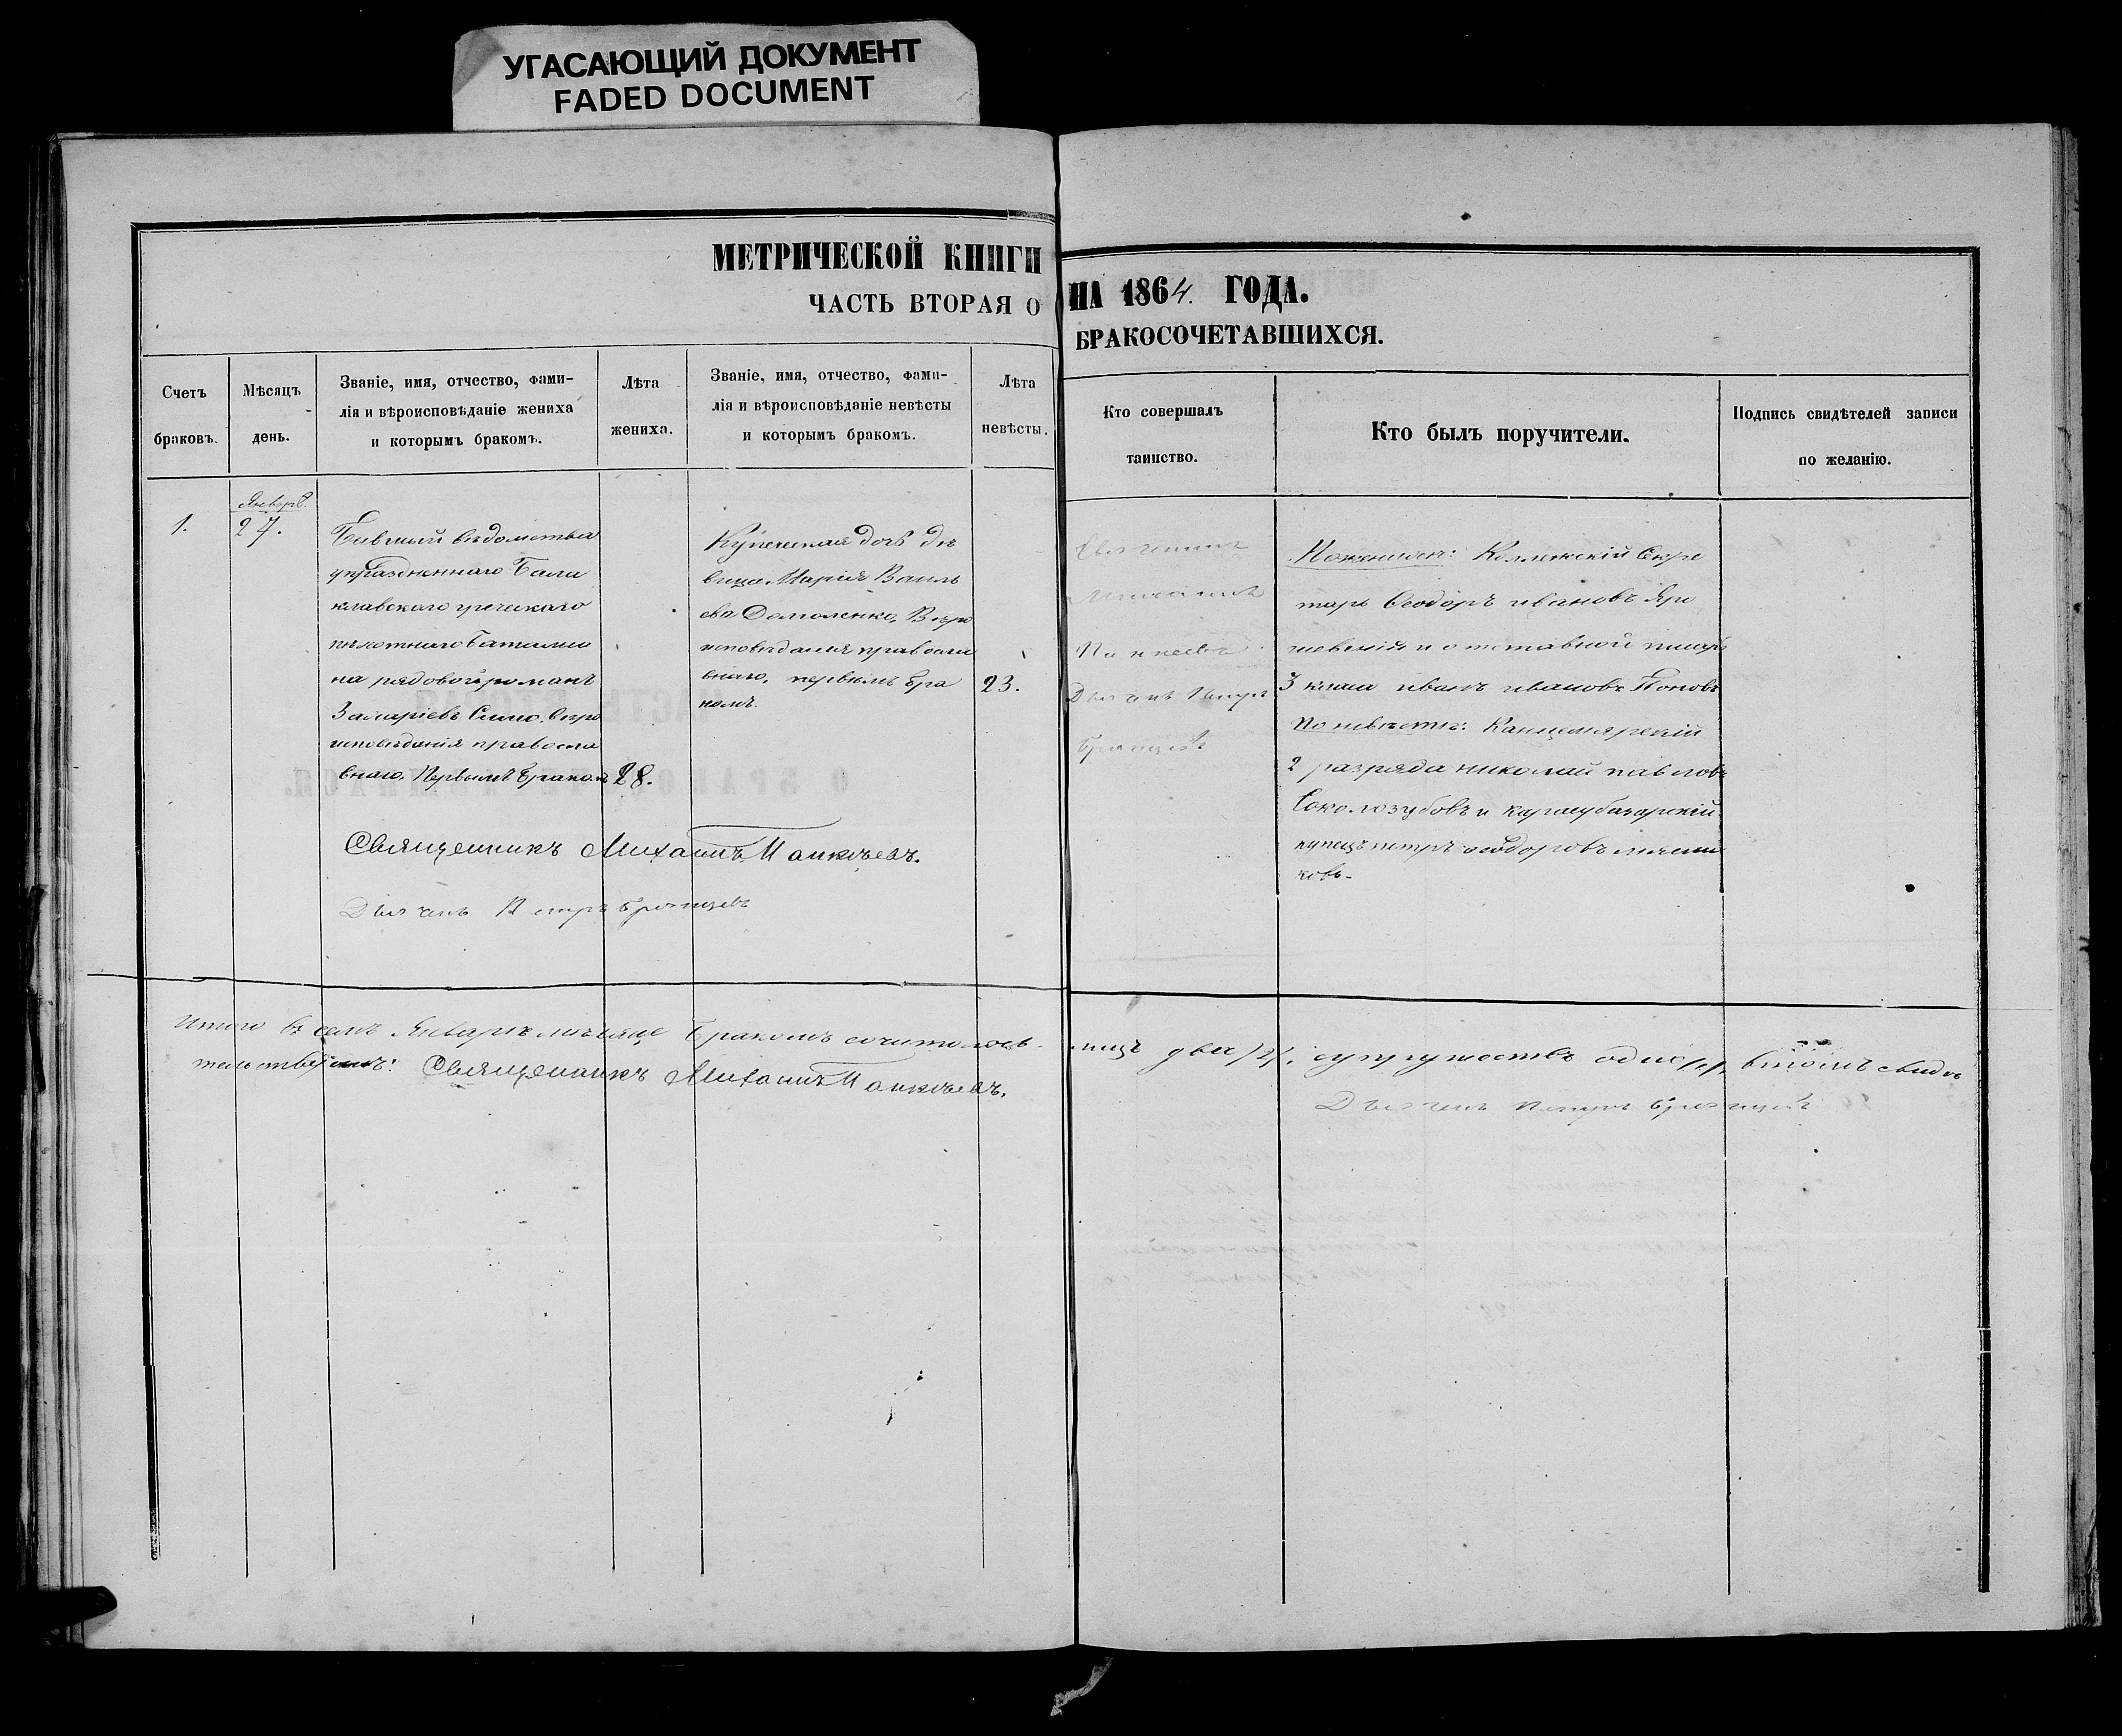 УГАСАЮЩИЙ ДОКУМЕНТ
FADED DOCUMENT
МЕТРИЧЕСКОЙ КНИГИ
НА 1864. ГОДА.
ЧАСТЬ ВТОРАЯ О
БРАКОСОЧЕТАВШИХСЯ.
Счетъ
браковъ.
Мѣсяцъ
день.
Званіе, имя, отчество, фами-
лія и вѣроисповѣданіе жениха
и которымъ бракомъ.
Лѣта
жениха.
Званіе, имя, отчество, фами-
лія и вѣроисповѣданіе невѣсты
и которымъ бракомъ.
Лѣта
невѣсты.
Кто совершалъ
таинство.
Кто былъ поручители.
Подпись свидѣтелей записи
по желанію.
1.
Январь
27.
Бывшій вѣдомства
упраздненнаго Бала
клавскаго греческаго
пѣхотнаго Баталіо
на рядовой романъ
вѣро
исповѣданія правосла
внаго. Первымъ бракомъ
28.
Купеческая дочь дѣ
вица Марія Василь
ева Вѣро
исповѣданія правосла
внаго, первымъ бра
комъ.
23.
Священникъ
Михаилъ
Дьячекъ Петръ
По женихѣ: Коллежскій Секре
тарь Ѳеодоръ ивановъ Яро
шевскій и отставной писарь
3 класа иванъ ивановъ Поповъ
По невѣстѣ: Канцелярскій
2 разряда николай павловъ
и карасубазарскій
купецъ петръ ѳеодоровъ
ковъ.
Священникъ Михаилъ
Дьячекъ Петръ
Итого въ семъ Январѣ мѣсяце Бракомъ сочиталось
лицъ двое /2/, супружествъ одно /1/, въ томъ свидѣ
тельствуемъ: Священникъ Михаилъ
Дьячекъ Петръ